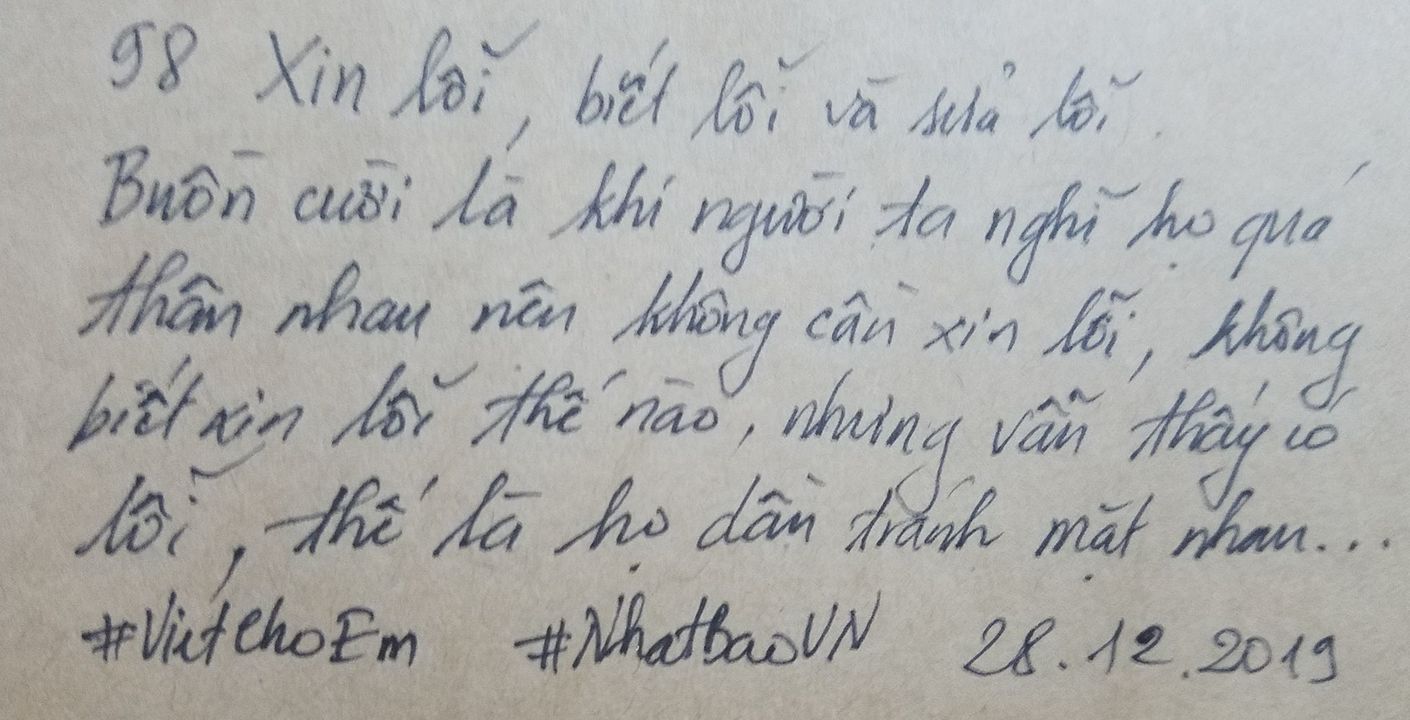 98 Xin lỗi, biết lỗi và sửa lỗi.
Buồn cười là khi người ta nghĩ họ quá
thân nhau nên không cần xin lỗi, không
biết xin lỗi thế nào, nhưng vẫn thấy có
lỗi, thế là họ dần tránh mặt nhau...
#ViếtchoEm #NhatbaoVN 28.12.2019